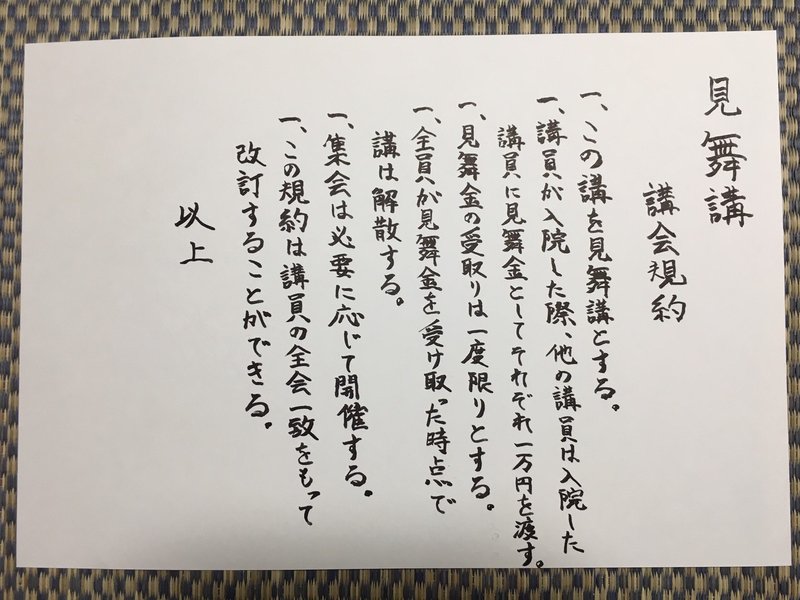 見舞講
講会規約
一、この講を見舞講とする。
一、講員が入院した際、他の講員は入院した
講員に見舞金としてそれぞれ一万円を渡す。
一、見舞金の受取りは一度限りとする。
一、全員が見舞金を受け取った時点で
講は解散する。
一、集会は必要に応じて開催する。
一、この規約は講員の全会一致をもって
改訂することができる。
以上